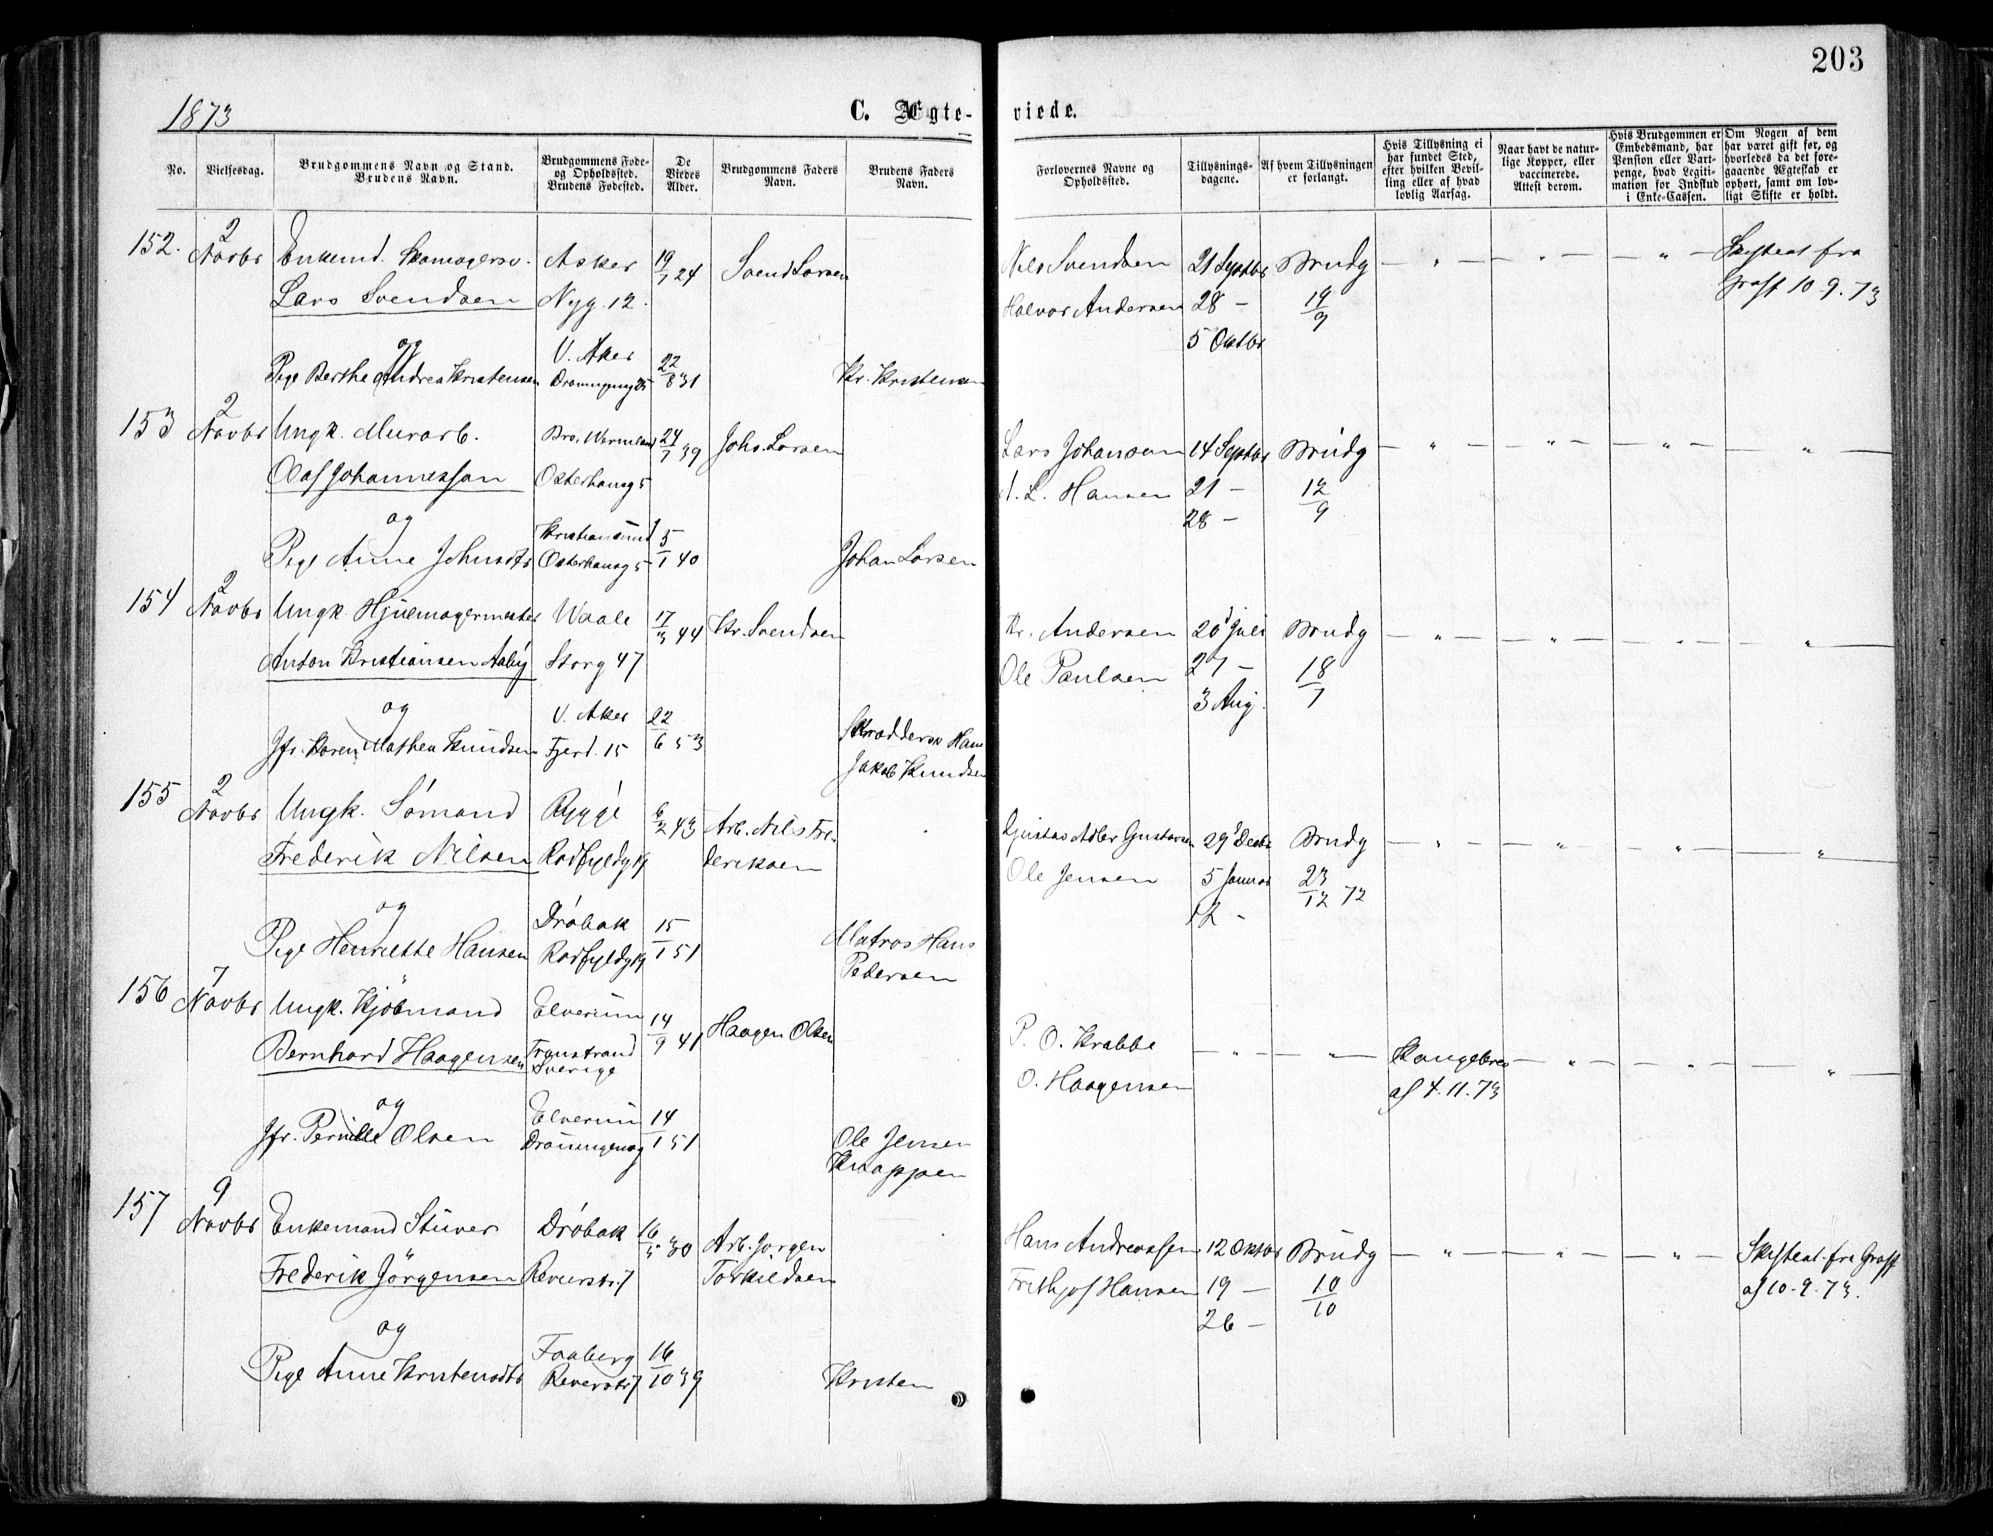 203
1873
C. Ægte-
viede.
No.
Vielsesdag.
Brudgommens Navn og Stand.
Brudens Navn.
Brudgommens Føde-
og Opholdssted.
Brudens Fødested.
De
Viedes
Alder.
Brudgommens Faders
Navn.
Brudens Faders
Navn.
Forlovernes Navne og
Opholdssted.
Tillysnings-
dagene.
Af hvem Tillysningen
er forlangt.
Hvis Tillysning ei
har fundet Sted,
efter hvilken Bevil-
ling eller af hvad
lovlig Aarsag.
Naar havt de natur-
lige Kopper, eller
vaccinerede.
Attest derom.
Hvis Brudgommen er
Embedsmand, har
Pension eller Vart-
penge, hvad Legiti-
mation for Indskud
i Enke-Cassen.
Om Nogen af dem
har været gift før, og
hvorledes da det fore-
gaaende Ægteskab er
ophørt, samt om lov-
ligt Skifte er holdt.
152. 2 Novbr Enkemd. Skomagersv. Asker 19/7 24 Svend Larsen
Lars Svendsen Nyg. 12.
og V. Aker 22/8 31
Pige Berthe Andrea Kristensen Kr. Kristensen
Nils Svendsen 21 Septbr Brudg - " - " - " - Skifteat fra
Halvor Andersen 28 - 19/9 Graff 10-9.73
5 Oktbr
153 2 Novbr Ungk. Murarb. Bro, Wermland 24/7 39 Johs. Larsen
Olaf Johannessen Osterhausg 5
og Kristiansund 5/1 40
Pige Anne Johnsdtr Osterhausg 5 Johan Larsen
Lars Johansen 14 Septbr Brudg - " - " - " - " -
A. L. Hansen 21 - 12/9
28 -
154 2 Novbr Ungk. Hjulmagermester Waale 17/3 44 Kr. Svendsen
Anton Kristiansen Aaby Storg 47
og V. Aker 22/6 53
Jfr. Karen Mathea Knudsen Fjerd. 15 Skræddersv Hans
Jakob Knudsen
Kr. Andersen 20 Juli Brudg - " - " - " - " -
Ole Paulsen 27 - 18/7
3 Aug.
155 2 Novbr Ungk. Sømand Rygge 6/2 43 Arb. Nils Fre-
Frederik Nilsen Rødfyldg 19 deriksen
og Drøbak 15/1 51
Pige Henriette Hansen Rødfyldg 19 Matros Hans
Pedersen
Gustav Adler Gustavsen 29 Decbr Brudg - " - " - " - " -
Ole Jensen 5 Januar 23/12 72
12 -
156 7 Novbr Ungk. Kjöbmand Elverum 14/9 41 Haagen Olsen
Bernhard Haagensen Transtrand
Sverige
og Elverum 14/1 51
Jfr. Pernille Olsen Dronningensg Ole Jensen
Knappen
P. O. Krabbe - " - " - Kongebrev - " - " - " -
O. Haagensen af 4.11.73
157 9 Novbr Enkemand Stuver Drøbak 16/5 30 Arb. Jørgen
Frederik Jörgensen Reverstr. 7 Torkildsen
og Faaberg 16/10 39
Pige Anne Kristensdtr Reverstr. 7 Kristen
Hans Andreassen 12 Oktbr Brudg - " - " - " - Skifteat. fra Graff
Frithjof Hansen 19 - 10/10 af 10-9.73.
26 -